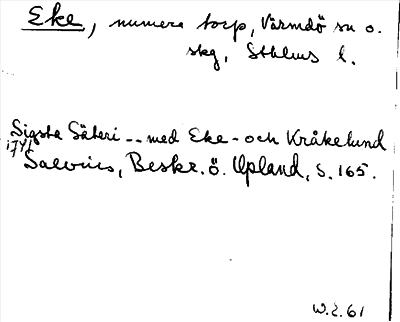 Eke, numera torp, Värmdö sn o.
skg, Sthlms l.
Sigsta Säteri -- med Eke- och Kråkelund
1741
Salvius, Beskr. ö. Upland, s. 165.
W.Z. 61